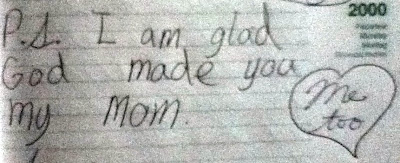 2000
P.S. I am glad
God made you
my Mom.
Me
too